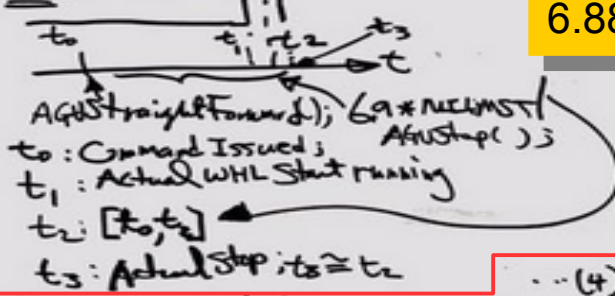 6.88
t₀ t₁ t₂ t₃
t
AGVStraightForward();
AGVStop();
t₀: Command Issued;
t₁: Actual WHL Start running
t₂: [t₀,t₂]
t₃: Actual Stop; t₃≅t₂
...(4)